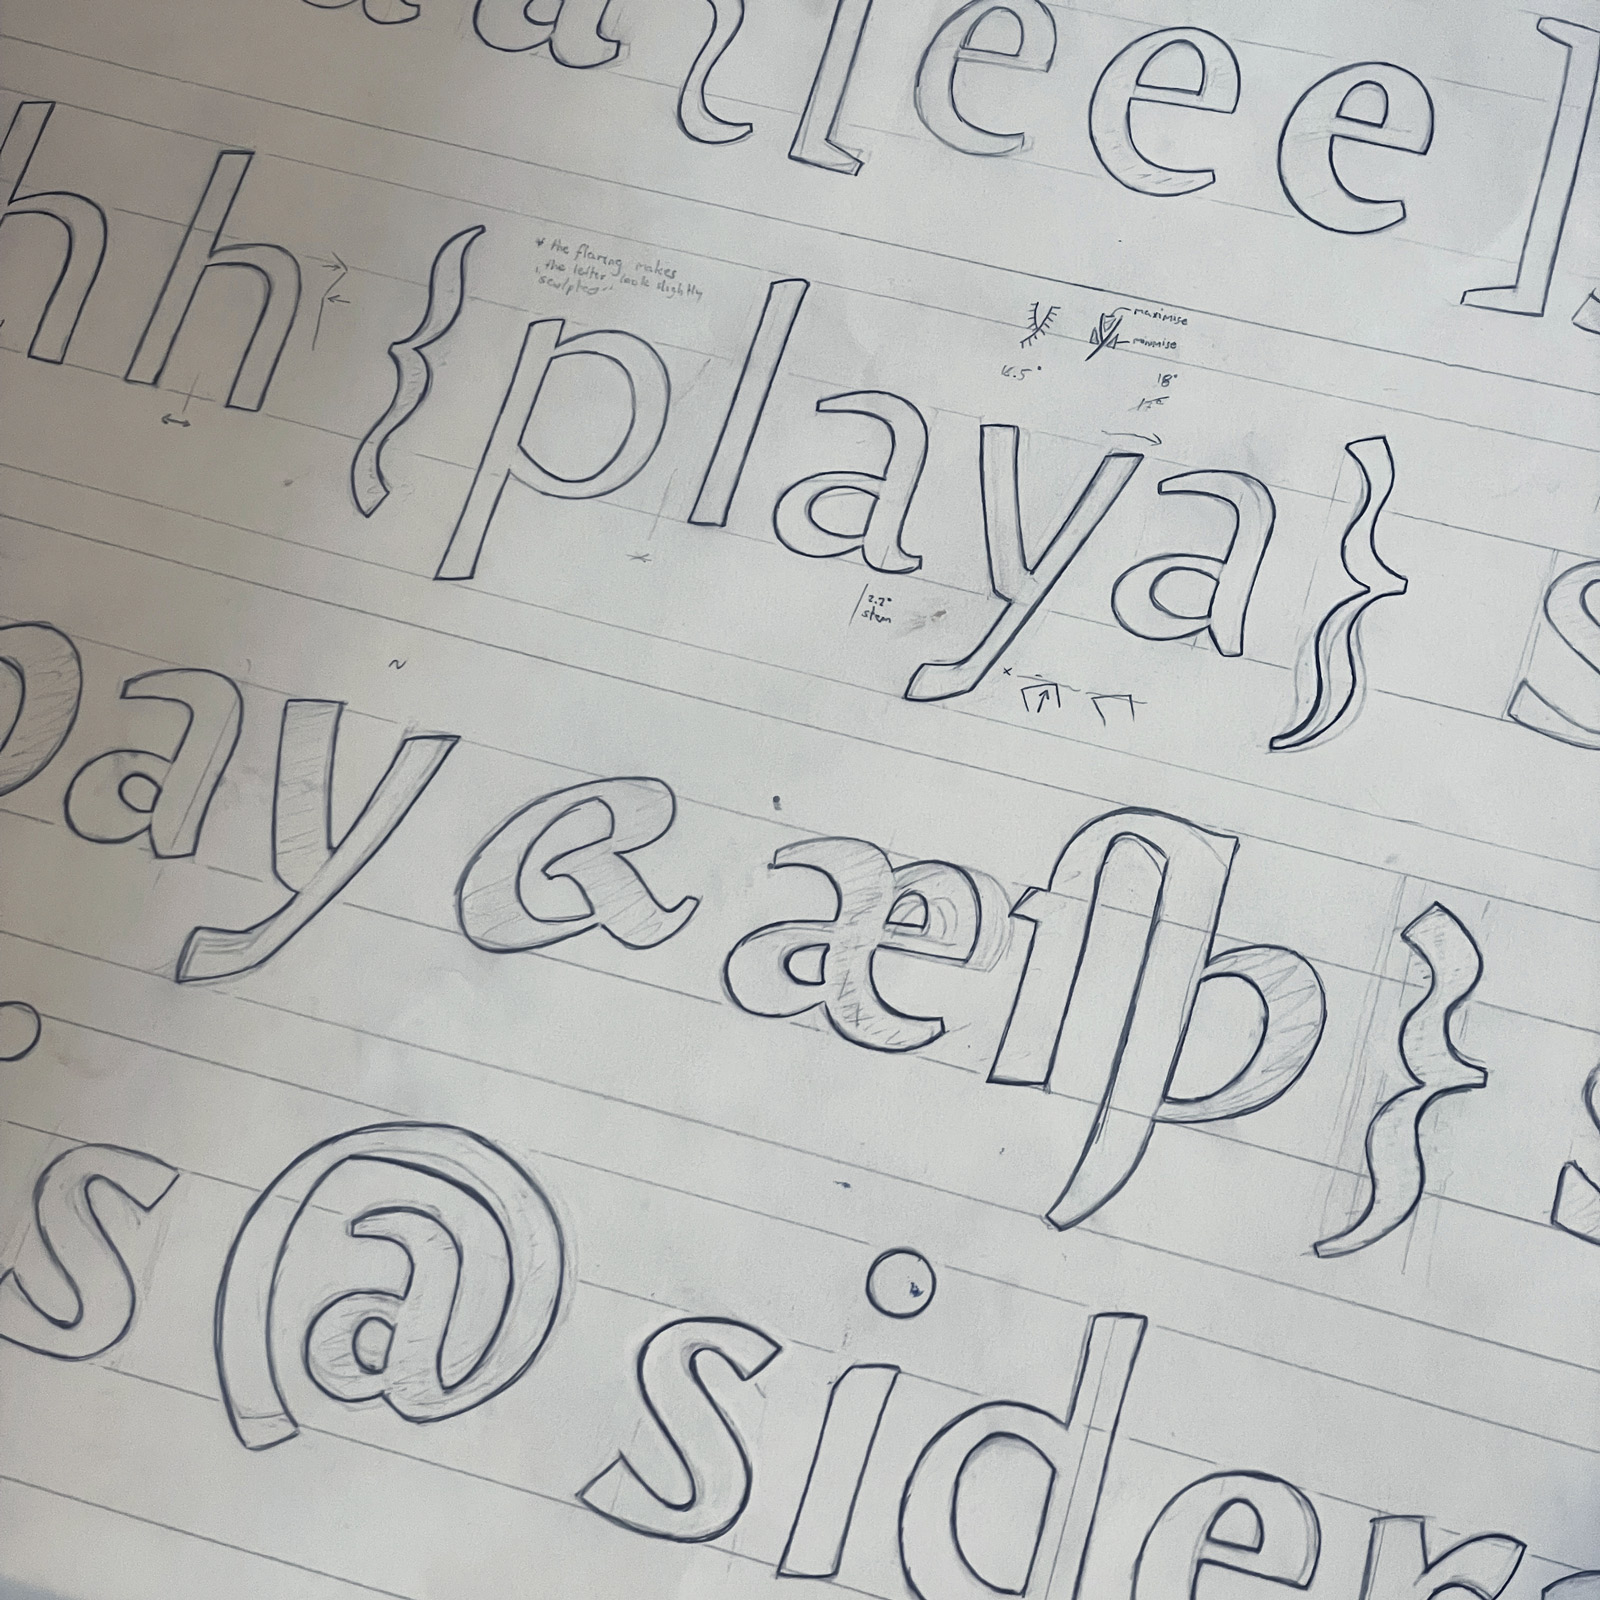 a a l l e e e l
h h { p l a y a } s
* the flaring makes
the letter look slightly
sculpted..
maximise
minimise
16.5°
18°
17°
2.2°
stem
p a y & æ ſþ } s
s @ s i d e r